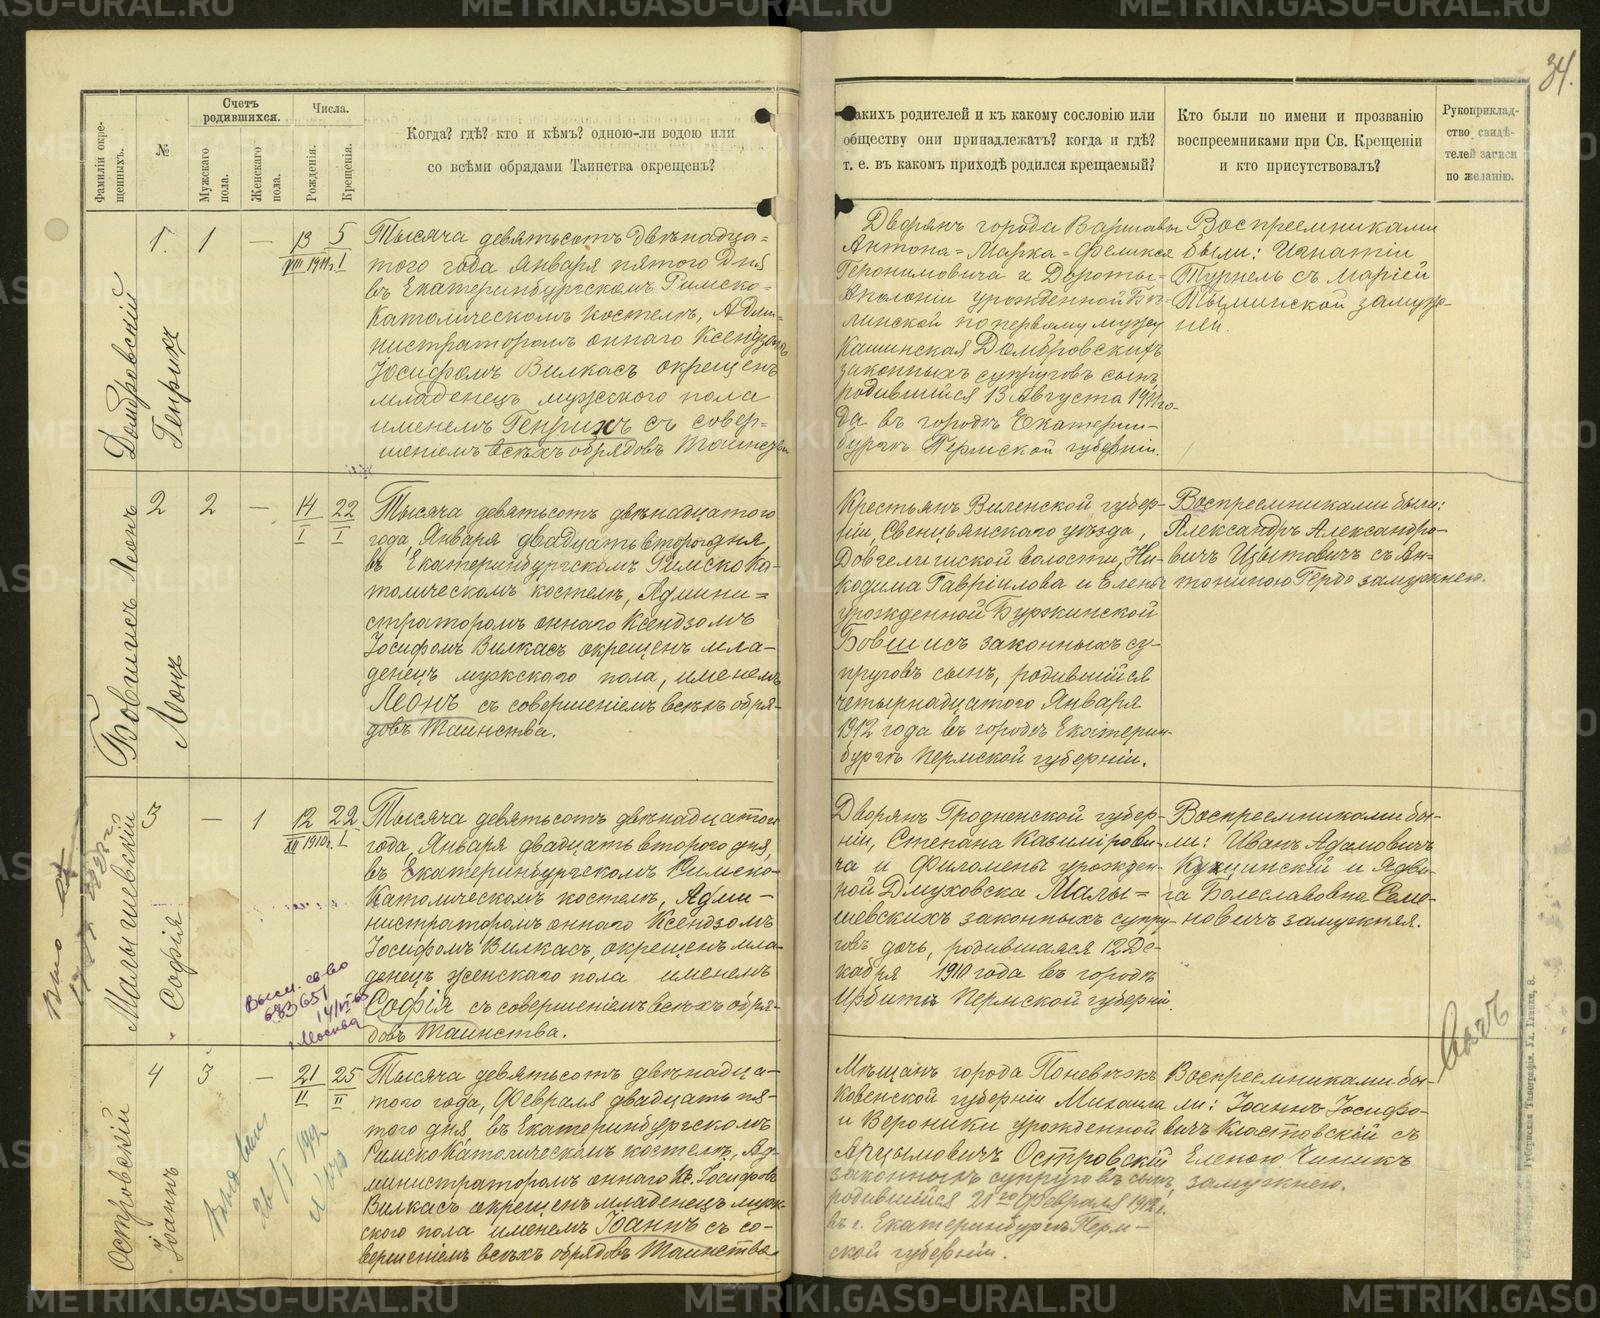 METRIKI.GASO-URAL.RU
34.
Фамилій окре-
щенныхъ.
№
Счетъ
родившихся.
Мужскаго
пола.
Женскаго
пола.
Числа.
Рожденія.
Крещенія.
Когда? гдѣ? кто и кѣмъ? одною-ли водою или
со всѣми обрядами Таинства окрещенъ?
какихъ родителей и къ какому сословію или
обществу они принадлежатъ? когда и гдѣ?
т. е. въ какомъ приходѣ родился крещаемый?
Кто были по имени и прозванію
воспреемниками при Св. Крещеніи
и кто присутствовалъ?
Рукоприклад-
ство свидѣ-
телей записи
по желанію.
Домбровскій
Генрихъ
1. 1 — 13 5
VIII 1911г. I
Тысяча девятьсотъ двѣнадца=
того года Января пятого дня
въ Екатеринбургскомъ Римско-
Католическомъ костелѣ, Адми-
нистраторомъ оннаго Ксендзомъ
Іосифомъ Вилкасъ окрещенъ
младенецъ мужского пола
именемъ Генрихъ съ совер=
шеніемъ всѣхъ обрядовъ Таинства
Дворянъ города Варшавы
Антона=Марка=Феликса
Геронимовича и Дороты-
Аполоніи урожденной
линской по первому мужу
Кашинская Домбровскихъ
законныхъ супруговъ сынъ,
родившійся 13 Августа 1911 го-
да въ городѣ Екатерин-
бургѣ Пермской губерніи.
Воспреемниками
были: Игнатій
Турнель съ Маріей
Тыминской замуж-
ней.
Бовшисъ Леонъ
Леонъ
2 2 — 14 22
I I
Тысяча девятьсотъ двѣнадцатого
года, Января двадцать второго дня
въ Екатеринбургскомъ Римско Ка-
толическомъ костелѣ, Админи=
страторомъ оннаго Ксендзомъ
Іосифомъ Вилкасъ окрещенъ мла-
денецъ мужскаго пола, именемъ
Леонъ съ совершеніемъ всѣхъ обря-
довъ Таинства.
Крестьянъ Виленской губер-
ніи, Свенцянскаго уѣзда,
Довгелишской волости, Ни-
кодима Гавріилова и Елены
урожденной Буржинской
Бовшисъ законныхъ су-
пруговъ сынъ, родившійся
четырнадцатого Января
1912 года въ городѣ Екатерин-
бургѣ Пермской губерніи.
Воспреемниками были:
Александръ Александро-
вичъ Цытовичъ съ Ан-
тониною Гердо замужнею.
Малышевскій
Софія
3 — 1 12 22
XII 1910г. I
Тысяча девятьсотъ двѣнадцатого
года, Января двадцать второго дня,
въ Екатеринбургскомъ Римско-
Католическомъ костелѣ, Адми-
нистраторомъ оннаго Ксендзомъ
Іосифомъ Вилкасъ, окрещенъ мла-
денецъ женскаго пола именемъ
Софія съ совершеніемъ всѣхъ обря-
довъ Таинства.
Дворянъ Гродненской губер-
ніи, Степана Казимірови-
ча и Филомены урожден-
ной Дмуховска Малы=
шевскихъ законныхъ супру-
говъ дочь, родившаяся 12 Де-
кабря 1910 года въ городѣ
Ирбитѣ Пермской губерніи.
Воспреемниками бы-
ли: Иванъ Адамовичъ
Кухцинскій и Ядви-
га Болеславовна Семе-
новичъ замужняя.
г. Москва
Островскій
Іоаннъ
4 3 — 21 25
II II
Тысяча девятьсотъ двѣнадца-
того года, Февраля двадцать пя-
того дня, въ Екатеринбургскомъ
Римско Католическомъ костелѣ, Ад-
министраторомъ оннаго Кс. Іосифомъ
Вилкасъ окрещенъ младенецъ муж-
ского пола именемъ Іоаннъ съ со-
вершеніемъ всѣхъ обрядовъ Таинства.
Мѣщанъ города Поневѣжъ
Ковенской губерніи Михаила
и Вероники урожденной
Арцымовичъ Островскій
законныхъ супруговъ сынъ,
родившійся 21го Февраля 1912 г.
въ г. Екатеринбургѣ Перм-
ской губерніи.
Воспреемниками бы-
ли: Іоаннъ Іосифо-
вичъ Кластовскій съ
Еленою Чиникъ
замужнею.